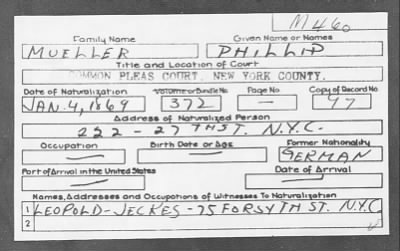 M460
Family Name Given Name or Names
MUELLER PHILLIP
Title and Location of Court
COMMON PLEAS COURT, NEW YORK COUNTY.
Date of Naturalization Volume or Bundle No. Page No Copy of Record No
JAN. 4, 1869 372 — 47
Address of Naturalized Person
222 - 27 7TH ST. N.Y.C.
Occupation Birth Date or Age Former Nationality
— — GERMAN
Port of Arrival in the United States Date of Arrival
— —
Names, Addresses and Occupations of Witnesses To Naturalization
1 LEOPOLD - JECKES - 75 FORSYTH ST. N.Y.C
2